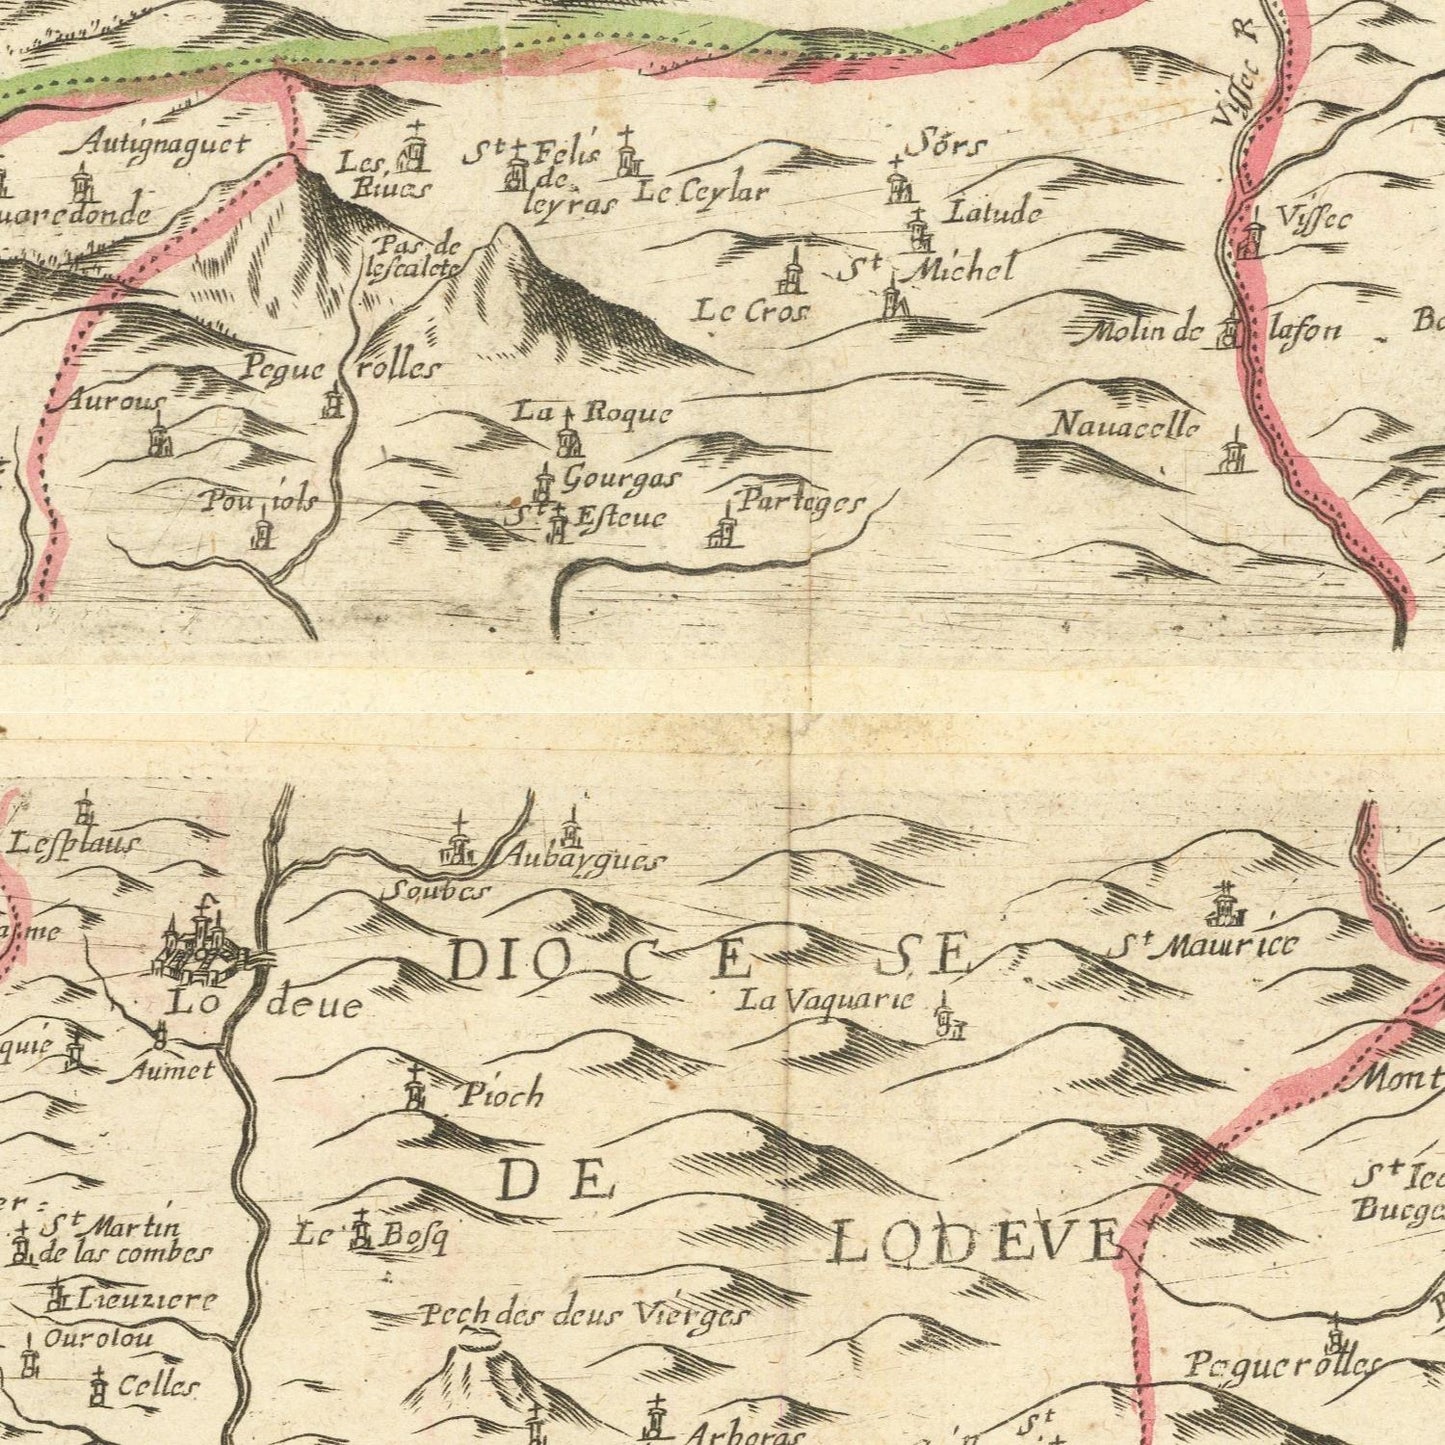 Vissec R
Autignaguet
Les
Rives
St Felis
de
leyras
Le Ceylar
Sors
Latude
Vissec
Pas de
lescalete
St Michel
Le Cros
Molin de lafon
Pegue rolles
Aurous
La Roque
Navacelle
Gourgas
Pou iols
St Esteve
Parteges
Lesplaus
Aubaygues
Soubes
St Maurice
DIOCESE
La Vaquarie
Lo deve
Aumet
Pioch
Mont
DE
St Martin
de las combes
Le Bosq
LODEVE
Lieuziere
Pech des deus Vierges
Ourolou
Celles
Peguerolles
St